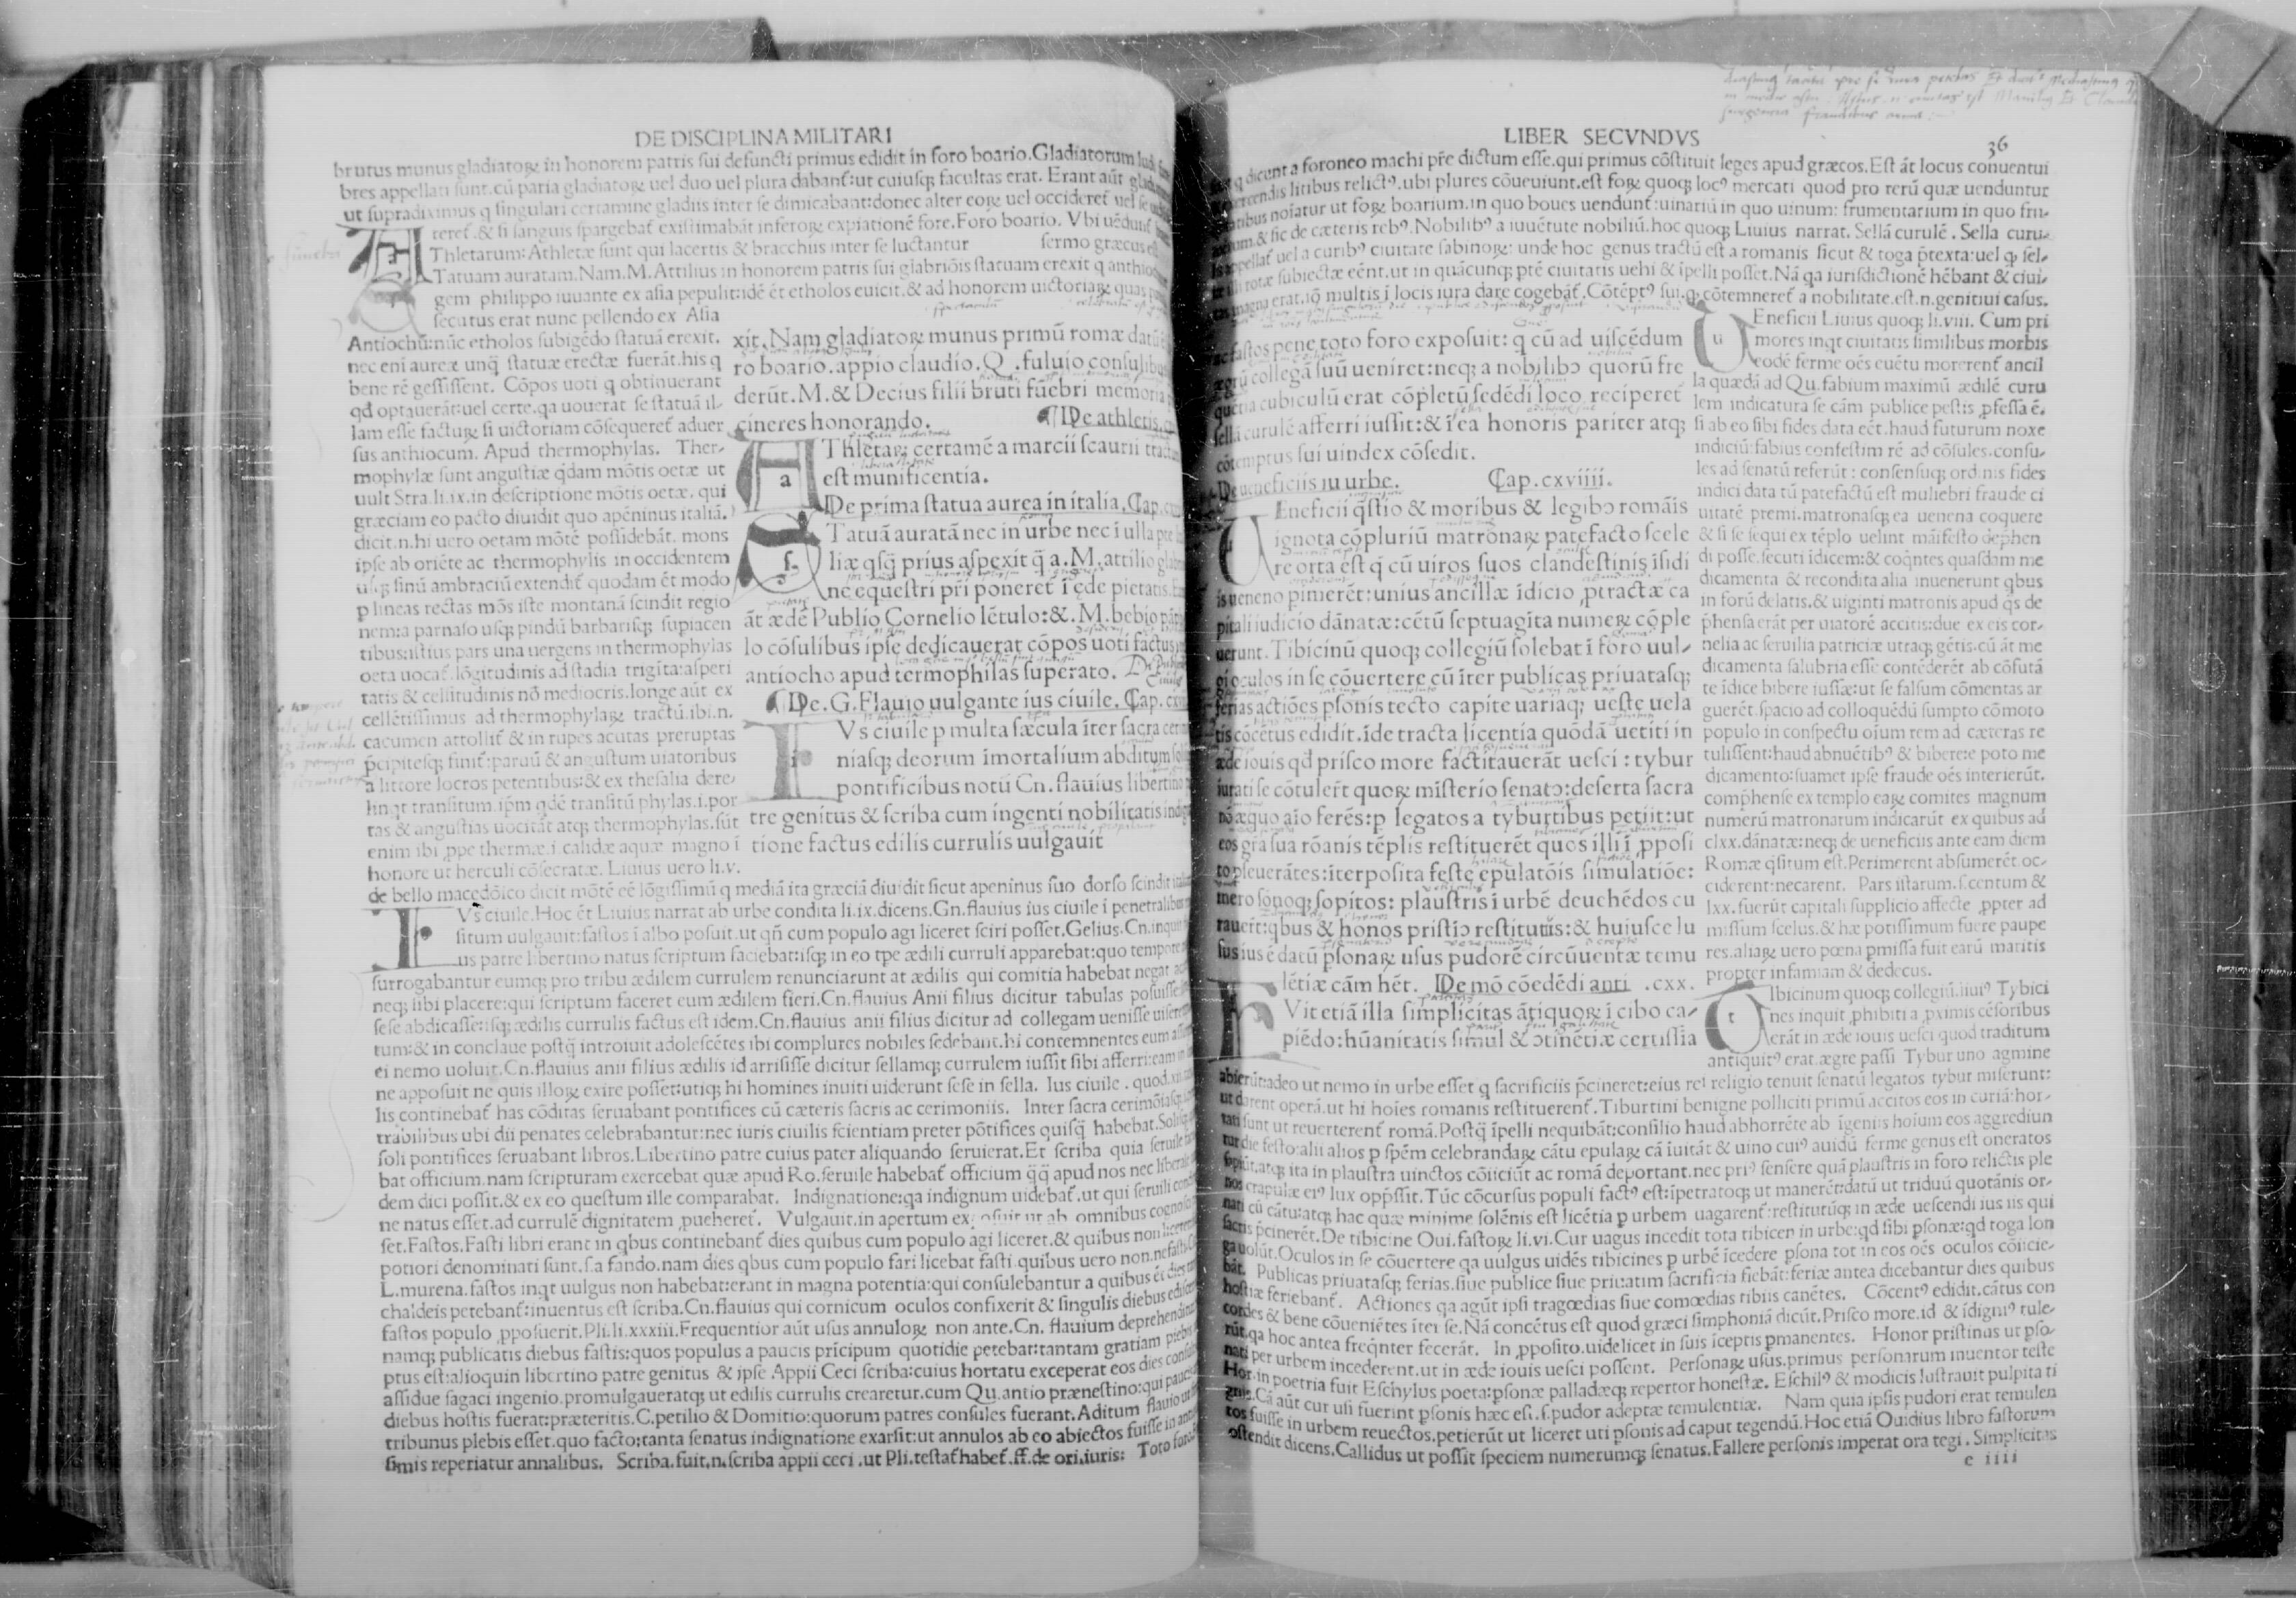 DE DISCIPLINA MILITARI
brutus munus gladiatoꝝ in honorem patris sui defuncti primus edidit in foro boario.Gladiatorum
bres appellati sunt.cū paria gladiatoꝝ uel duo uel plura dabant̄:ut cuiusq; facultas erat. Erant aūt
ut supradiximus q singulari certamine gladiis inter se dimicabant:donec alter eoꝝ uel occideret̄ uel se
teret̄.& si sanguis spargebat̄ existimabāt inferoꝝ expiationē fore.Foro boario. Vbi uēdunt̄
Thletarum:Athletæ sunt qui lacertis & bracchiis inter se luctantur sermo græcus
Tatuam auratam.Nam.M.Attilius in honorem patris sui glabriōis statuam erexit q
gem philippo iuuante ex asia pepulit:idē et etholos euicit.& ad honorem uictoriaꝝ quas
secutus erat nunc pellendo ex Asia
Antiochū:nūc etholos subigēdo statuā erexit.
nec eni aureæ unq̄ statuæ erectæ fuerāt.his q
bene rē gessissent. Cōpos uoti q obtinuerant
qd optauerāt:uel certe.qa uouerat se statuā il-
lam esse factuꝝ si uictoriam cōsequeret̄ aduer
sus anthiocum. Apud thermophylas. Ther-
mophylæ sunt angustiæ q̄dam mōtis oetæ ut
uult Stra.li.ix.in descriptione mōtis oetæ. qui
græciam eo pacto diuidit quo apēninus italiā.
dicit.n.hi uero oetam mōtē possidebāt. mons
ipse ab oriēte ac thermophylis in occidentem
usq; sinū ambraciū extendit̄ quodam ēt modo
p lineas rectas mōs iste montanā scindit regio
nem:a parnaso usq; pindū barbarisq; supiacen
tibus:istius pars una uergens in thermophylas
oeta uocat̄.lōgitudinis ad stadia trigīta:asperi
tatis & celsitudinis nō mediocris.longe aūt ex
cellētissimus ad thermophylaꝝ tractū.ibi.n.
cacumen attollit̄ & in rupes acutas preruptas
p̄cipitesq; finit̄:paruū & angustum uiatoribus
a littore locros petentibus:& ex thesalia dere-
linqt transitum.ip̄m qdē transitū phylas.i.por
tas & angustias uocitāt atq; thermophylas.sūt
enim ibi ꝓpe thermæ.i.calidæ aquæ magno ī
honore ut herculi cōsecratæ. Liuius uero li.v.
de bello macedōico dicit mōtē eē lōgissimū q mediā ita græciā diuidit sicut apeninus suo dorso scindit
xit. Nam gladiatoꝝ munus primū romæ
ro boario.appio claudio.Q .fuluio
derūt.M.& Decius filii bruti fūebri memoria
cineres honorando. ¶De athletis.
THletaꝝ certamē a marcii scaurii
est munificentia.
De prima statua aurea in italia. Cap.
Tatuā auratā nec in urbe nec ī ulla
liæ qsq̄ prius aspexit q̄ a.M.attilio
ne equestri pr̄i poneret̄ ī ede pietatis.
āt ædē Publio Cornelio lētulo:&.M.bebio
lo cōsulibus ipse dedicauerat cōpos uoti factus
antiocho apud termophilas superato.
¶De.G.Flauio uulgante ius ciuile. Cap.
Vs ciuile p multa sæcula īter sacra
niasq; deorum īmortalium abditum
pontificibus notū Cn.flauius libertino
tre genitus & scriba cum ingenti nobilitatis
tione factus edilis currulis uulgauit
Vs ciuile.Hoc ēt Liuius narrat ab urbe condita li.ix.dicens.Gn.flauius ius ciuile ī
situm uulgauit:fastos ī albo posuit.ut qn̄ cum populo agi liceret sciri posset.Gelius.Cn.
us patre libertino natus scriptum faciebat:isq; in eo tpe ædili curruli apparebat:quo
surrogabantur eumq; pro tribu ædilem currulem renunciarunt at ædilis qui comitia habebat negat
neq; sibi placere:qui scriptum faceret eum ædilem fieri.Cn.flauius Anii filius dicitur tabulas
sese abdicasse:isq; ædilis currulis factus est idem.Cn.flauius anii filius dicitur ad collegam uenisse
tum:& in conclaue postq̄ introiuit adolescētes ibi complures nobiles sedebant.hi contemnentes eum
ei nemo uoluit.Cn.flauius anii filius ædilis id arrisisse dicitur sellamq; currulem iussit sibi afferri:eam in
ne apposuit ne quis illoꝝ exire posset:utiq; hi homines inuiti uiderunt sese in sella. Ius ciuile . quod.
lis continebat̄ has cōditas seruabant pontifices cū cæteris sacris ac cerimoniis. Inter sacra
trabilibus ubi dii penates celebrabantur:nec iuris ciuilis scientiam preter pōtifices quisq̄ habebat.
soli pontifices seruabant libros.Libertino patre cuius pater aliquando seruierat.Et scriba quia seruile
bat officium.nam scripturam exercebat quæ apud Ro.seruile habebat̄ officium q̄q̄ apud nos nec
dem dici possit.& ex eo questum ille comparabat. Indignatione:qa indignum uidebat̄.ut qui seruili
ne natus esset.ad currulē dignitatem ꝓueheret̄. Vulgauit.in apertum omnibus
set.Fastos.Fasti libri erant in qbus continebant̄ dies quibus cum populo agi liceret.& quibus non
potiori denominati sunt.f.a fando.nam dies qbus cum populo fari licebat fasti.quibus uero non.
L.murena.fastos inqt uulgus non habebat:erant in magna potentia:qui consulebantur a quibus ēt
chaldeis petebant̄:inuentus est scriba.Cn.flauius qui cornicum oculos confixerit & singulis diebus
fastos populo ꝓposuerit.Pli.li.xxxiii.Frequentior aūt usus annuloꝝ non ante.Cn. flauium
namq; publicatis diebus fastis:quos populus a paucis pricipum quotidie petebat:tantam gratiam
ptus est:alioquin libertino patre genitus & ipse .Appii Ceci scriba:cuius hortatu exceperat eos dies
assidue sagaci ingenio.promulgaueratq; ut edilis currulis crearetur.cum Qu.antio prænestino:qui
diebus hostis fuerat:præteritis.C.petilio & Domitio:quorum patres consules fuerant.Aditum flauio
tribunus plebis esset.quo facto:tanta senatus indignatione exarsit:ut annulos ab eo abiectos fuisse in
simis reperiatur annalibus. Scriba.fuit.n.scriba appii ceci .ut Pli.testat̄ habet̄.ff.de ori.iuris: Toto
LIBER SECVNDVS
36
q dicunt a foroneo machi pr̄e dictum esse.qui primus cōstituit leges apud græcos.Est āt locus conuentui
litibus relict9.ubi plures cōueniunt.est foꝝ quoq; loc9 mercati quod pro rerū quæ uenduntur
noīatur ut foꝝ boarium.in quo boues uendunt̄:uinariū in quo uinum: frumentarium in quo fru-
& sic de cæteris reb9.Nobilib9 a iuuētute nobiliū.hoc quoq; Liuius narrat. Sellā curulē . Sella curu-
appellat̄ uel a curib9 ciuitate sabinoꝝ: unde hoc genus tractū est a romanis sicut & toga p̄texta:uel q sel-
rotæ subiectæ eēnt.ut in quācunq; ptē ciuitatis uehi & īpelli posset.Nā qa iurisdictionē hēbant & ciui-
magna erat.iō multis ī locis iura dare cogebāt̄.Cōtēpt9 sui.q; cōtemneret̄ a nobilitate.est.n.genitiui casus.
fastos pene toto foro exposuit: q cū ad uiscēdum
collegā suū ueniret:neq; a nobilibɔ quorū fre
cubiculū erat cōpletū sedēdi loco reciperet̄
sellā curulē afferri iussit:& ī ea honoris pariter atq;
cōtemptus sui uindex cōsedit.
De ueneficiis in urbe. Cap.cxviiii.
Eneficii q̄stio & moribus & legibɔ romāis
ignota cōpluriū matronaꝝ patefacto scele
re orta est q cū uiros suos clandestinis īsidi
is ueneno pimerēt:unius ancillæ īdicio ꝓtractæ ca
pitali iudicio dānatæ:cētū septuagīta numeꝝ cōple
uerunt. Tibicinū quoq; collegiū solebat ī foro uul-
gi oculos in se cōuertere cū īter publicas priuatasq;
ferias actiōes psonis tecto capite uariaq; ueste uela
tis cōcētus edidit.īde tracta licentia quōdā uetiti in
æde iouis qd prisco more factitauerāt uesci : tybur
irati se cōtuler̄t quoꝝ misterio senatɔ:deserta sacra
nō æquo aīo ferēs:p legatos a tyburtibus petiit:ut
eos gr̄a sua rōanis tēplis restituerēt quos illi ī ꝓposi
to pseuerātes:īterposita feste epulatōis simulatiōe:
mero sōnoq; sopitos: plaustris ī urbē deuehēdos cu
rauerūt:qbus & honos pristiɔ restitutus:& huiusce lu
sus ius ē datū psonaꝝ usus pudorē circūuentæ temu
lētiæ cām hēt. De mō cōedēdi anti .cxx.
Vit etiā illa simplicitas ātiquoꝝ ī cibo ca-
piēdo:hūanitatis simul & ɔtinētiæ certissīa
Eneficii Liuius quoq; li.viii. Cum pri
mores inqt ciuitatis similibus morbis
eodē ferme oēs euētu morerent̄ ancil
la quædā ad Qu.fabium maximū ædilē curu
lem indicatura se cām publice pestis ꝓfessa ē.
si ab eo sibi fides data eēt.haud futurum noxe
indiciū:fabius confestim rē ad cōsules.consu-
les ad senatū referūt : consensuq; ordinis fides
indici data tū patefactū est muliebri fraude ci
uitatē premi.matronasq; ea uenena coquere
& si se sequi ex tēplo uelint māifesto dep̄hen
di posse.secuti īdicem:& coq̄ntes quasdam me
dicamenta & recondita alia inuenerunt qbus
in forū delatis.& uiginti matronis apud q̄s de
p̄hensa erāt per uiatorē accitis:due ex eis cor-
nelia ac seruilia patriciæ utraq; gētis.cū āt me
dicamenta salubria esse contēderēt ab cōsutā
te īdice bibere iussæ:ut se falsum cōmentas ar
guerēt.spacio ad colloquēdū sumpto cōmoto
populo in conspectu oīum rem ad cæteras re
tulissent:haud abnuētib9 & biberete poto me
dicamento:suamet ipse fraude oēs interierūt.
comp̄hense ex templo eaꝝ comites magnum
numerū matronatum indicarūt ex quibus ad
clxx.dānatæ:neq; de ueneficiis ante eam diem
Romæ q̄situm est.Perimerent absumerēt.oc-
ciderent:necarent. Pars istarum.f.centum &
lxx.fuerūt capitali supplicio affecte ꝓpter ad
missum scelus.& hæ potissimum fuere paupe
res.aliaꝝ uero pœna pmissa fuit earū maritis
propter infamiam & dedecus.
Ibicinum quoq; collegiū.liui9 Tybici
nes inquit ꝓhibiti a ꝓximis cēsoribus
erāt in æde iouis uesci quod traditum
antiquit9 erat.ægre passi Tybur uno agmine
abierūt:adeo ut nemo in urbe esset q sacrificiis p̄cineret:eius rei religio tenuit senatū legatos tybur miserunt:
ut darent operā.ut hi hoies romanis restituerent̄.Tiburtini benigne polliciti primū accitos eos in curiā:hor-
tati sunt ut reuerterent̄ romā.Postq̄ īpelli nequibāt:consilio haud abhorrēte ab īgeniis hoium eos aggrediun
tur die festo:alii alios p spēm celebrandaꝝ cātu epulaꝝ cā īuitāt & uino cui9 auidū ferme genus est oneratos
sopiūt.atq; ita in plaustra uinctos cōiiciūt ac romā deportant.nec pri9 sensere quā plaustris in foro relictis ple
nos crapulæ ei9 lux opp̄ssit.Tūc cōcursus populi fact9 est:īpetratoq; ut manerēt:datū ut triduū quotānis or-
nati cū cātu:atq; hac quæ minime solēnis est licētia p urbem uagarent̄:restitutūq; in æde uescendi ius iis qui
sacris p̄cinerēt.De tibicine Oui.fastoꝝ li.vi.Cur uagus incedit tota tibicen in urbe:qd sibi psonæ:qd toga lon
ga uolūt.Oculos in se cōuertere qa uulgus uidēs tibicines p urbē īcedere psona tot in eos oēs oculos cōiicie-
bāt. Publicas priuatasq; ferias.siue publice siue priuatim sacrificia fiebāt:feriæ antea dicebantur dies quibus
hostiæ feriebant̄. Actiones qa agūt ipsi tragœdias siue comœdias tibiis canētes. Cōcent9 edidit.cātus con
cordes & bene cōueniētes īter se.Nā concētus est quod græci simphoniā dicūt.Prisco more.id & īdigni9 tule-
rūt.qa hoc antea freq̄nter fecerāt. In ꝓposito.uidelicet in suis īceptis pmanentes. Honor pristinus ut pso-
nati per urbem incederent.ut in æde iouis uesci possent. Personaꝝ usus.primus personarum inuentor teste
Hor.in poetria fuit Eschylus poeta:psonæ palladæq; repertor honestæ. Eschil9 & modicis lustrauit pulpita ti
gnis.Cā aūt cur usi fuerint psonis hæc est.f.pudor adeptæ temulentiæ. Nam quia ipsis pudori erat temulen
tos fuisse in urbem reuectos.petierūt ut liceret uti psonis ad caput tegendū.Hoc etiā Ouidius libro fastorum
ostendit dicens.Callidus ut possit speciem numerumq; senatus.Fallere personis imperat ora tegi . Simplicitas
c iiii